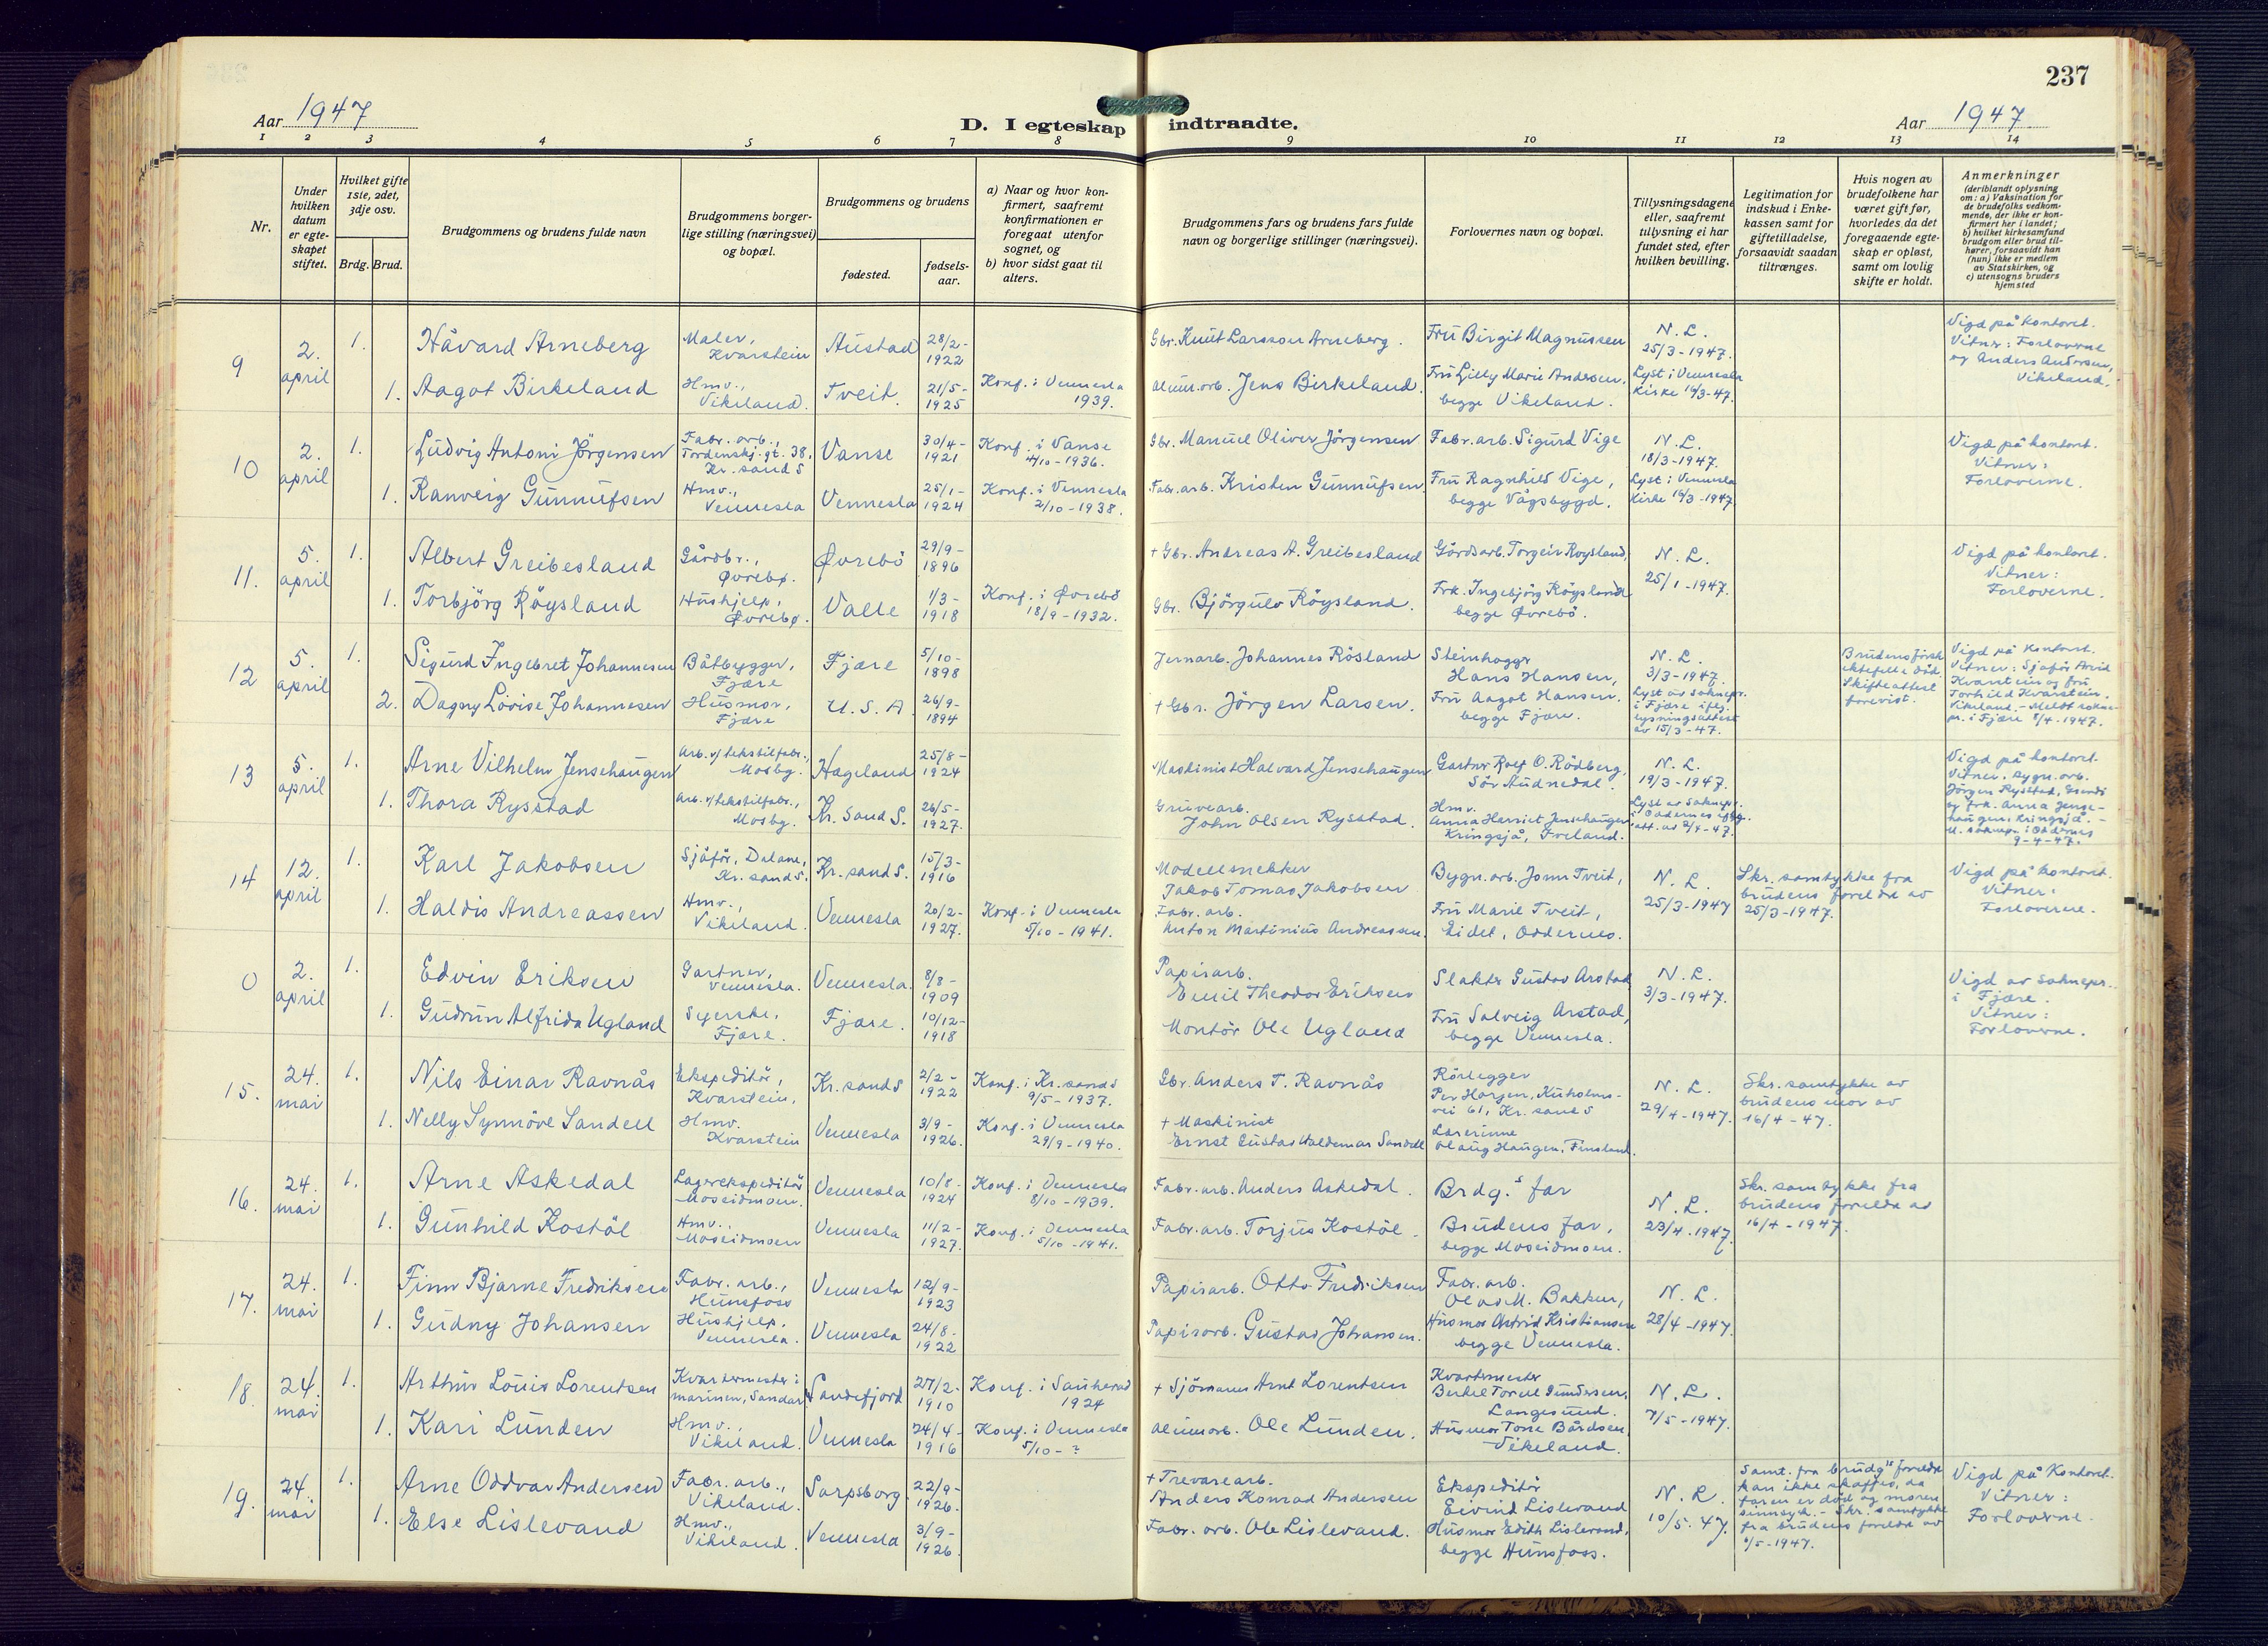 237
Aar 1947
D. I egteskap indtraadte.
Aar 1947
1 2 3 4 5 6 7 8 9 10 11 12 13 14
Nr.
Under
hvilken
datum
er egte-
skapet
stiftet.
Hvilket gifte
1ste, 2det,
3dje osv.
Brdg. Brud.
Brudgommens og brudens fulde navn
Brudgommens borger-
lige stilling (næringsvei)
og bopæl.
Brudgommens og brudens
fødested.
fødsels-
aar.
a) Naar og hvor kon-
firmert, saafremt
konfirmationen er
foregaat utenfor
sognet, og
b) hvor sidst gaat til
alters.
Brudgommens fars og brudens fars fulde
navn og borgerlige stillinger (næringsvei).
Forlovernes navn og bopæl.
Tillysningsdagene
eller, saafremt
tillysning ei har
fundet sted, efter
hvilken bevilling.
Legitimation for
indskud i Enke-
kassen samt for
giftetilladelse,
forsaavidt saadan
tiltrænges.
Hvis nogen av
brudefolkene har
været gift før,
hvorledes da det
foregaaende egte-
skap er opløst,
samt om lovlig
skifte er holdt.
Anmerkninger
(deriblandt oplysning
om: a) Vaksination for
de brudefolks vedkom-
mende, der ikke er kon-
firmert her i landet;
b) hvilket kirkesamfund
brudgom eller brud til-
hører, forsaavidt han
(hun) ikke er medlem
av Statskirken, og
c) utensogns bruders
hjemsted
9
2.
april
1.
Håvard Arneberg
Maler,
Kvarstein
Austad
28/2-
1922
Gbr. Knut Larsson Arneberg.
Fru Birgit Magnussen
N. L.
25/3-1947.
Vigd på kontoret.
Vitner: Forloverne
og Anders Andersen,
Vikeland.
1.
Aagot Birkeland
Hmv.,
Vikeland.
Tveit.
21/5-
1925
Konf. i Vennesla
1939.
Alum.arb. Jens Birkeland.
Fru Gilly Marie Andersen,
begge Vikeland.
Lyst i Vennesla
Kirke 16/3-47.
10
2.
april
1.
Ludvig Antoni Jörgensen
Fabr. arb.,
Tordenskj. gt. 38,
Kr. sand S
Vanse
30/4-
1921
Konf. i Vanse
4/10-1936.
Gbr. Manuel Oliver Jörgensen
Fabr. arb. Sigurd Vige
N. L.
18/3-1947.
Vigd på kontoret.
Vitner:
Forloverne.
1.
Ranveig Gunnufsen
Hmv.,
Vennesla
Vennesla
25/1-
1924
Konf. i Vennesla
2/10-1938.
Fabr. arb. Kristen Gunnufsen.
Fru Ragnhild Vige,
begge Vågsbygd.
Lyst i Vennesla
Kirke 16/3-1947
11.
5.
april
1.
Albert Greibesland
Gårdbr.,
Øvrebø.
Øvrebö
29/9-
1896
+ Gbr. Andreas A. Greibesland
Gårdsarb. Torgeir Roysland,
N. L.
25/1-1947.
Vigd på kontoret.
Vitner:
Forloverne.
1.
Torbjörg Röysland
Hushjelp,
Øvrebø.
Valle
1/3-
1918
Konf. i Øvrebö
18/9-1932.
Gbr. Björgulv Röysland.
Frk. Ingebjörg Röysland
begge Øvrebö.
12
5.
april
1.
Sigurd Ingebret Johannesen
Båtbygger,
Fjære
Fjære
5/10-
1898
Jernarb. Johannes Rösland
Steinhogger
Hans Hansen,
N. L.
3/3-1947.
Brudens förste
ektefelle död.
Skifteattest
forevist.
Vigd på kontoret.
Vitner: Sjåfør Arvid
Kvarstein og fru
Torhild Kvarstein.
Vikeland. - Meldt sokne-
pr. i Fjære 8/4-1947.
2.
Dagny Lovise Johannesen
Husmor,
Fjære
U. S. A
26/9-
1894
+ Gbr. Jörgen Larsen.
Fru Aagot Hansen.
begge Fjære.
Lyst av soknepr.
i Fjære iflg.
lysningsattest
av 15/3-47.
13
5.
april
1.
Arne Vilhelm Jensehaugen
Arb. v/ tekstilfabr.,
Mosby.
Hægeland
25/8-
1924
Maskinist Halvard Jensehaugen
Gartner Rolf O. Rödberg,
Sör Audnedal.
N. L.
19/3-1947.
Vigd på kontoret.
Vitner: bygn. arb.
Jörgen Rysstad,
og frk. Anna Jense-
haugen, Kringsjå. -
M. soknepr. i Oddernes
9-4-47.
1.
Thora Rysstad
Arb. v/ tekstilfabr.,
Mosby.
Kr. Sand S.
26/5-
1927.
Gruvearb.
John Olsen Rysstad.
Hmv.
Anna Harriet Jensehaugen
Kringsjå, Iveland.
Lyst av soknepr.
i Oddernes iflg.
att. av 2/4-47.
14
12.
april
1.
Karl Jakobsen
Sjåför, Dalane,
Kr. sand S.
Kr. sand S.
15/3-
1916
Modellsnekker
Jakob Tomas Jakobsen
Bygn. arb. John Tveit,
N. L.
25/3-1947
Skr. samtykke fra
brudens foreldre av
25/3-1947.
Vigd på kontoret.
Vitner:
Forloverne.
1.
Haldis Andreassen
Hmv.,
Vikeland.
Vennesla
20/2-
1927.
Konf. i Vennesla
5/10-1941.
Fabr. arb.
Anton Martinius Andreassen.
Fru Marie Tveit,
Eidet, Oddernes.
0
2.
april
1.
Edvin Eriksen
Gartner,
Vennesla.
Vennesla.
8/8-
1909
Papirarb.
Emil Theodor Eriksen
Slakter Gustav Arstad
N. L.
3/3-1947.
Vigd av soknepr.
i Fjære.
Vitner:
Forloverne.
1.
Gudrun Alfrida Ugland
Syerske,
Fjære.
Fjære.
10/12-
1918
Montör Ole Ugland
Fru Solveig Arstad,
begge Vennesla.
15.
24.
mai
1.
Nils Einar Ravnås
Ekspeditör,
Kvarstein,
Kr. sand S
2/2-
1922
Konf. i Kr. sand S
9/5-1937.
Gbr. Anders T. Ravnås
Rörlegger
Per Horgen, Kuholms-
vei 61, Kr. sand S
N. L.
29/4-1947.
Skr. samtykke av
brudens mor av
16/4-47.
1.
Nelly Synnöve Sandell
Hmv.
Kvarstein
Vennesla
3/9-
1926.
Konf. i Vennesla
29/9-1940.
+ Maskinist
Ernst Gustav Valdemar Sandell
Lærerinne
Olaug Haugen, Finsland.
16.
24.
mai
1.
Arne Askedal
Lagerekspeditör
Moseidmoen.
Vennesla
10/8-
1924
Konf. i Vennesla
8/10-1939.
Fabr. arb. Anders Askedal.
Brdg.s far
N. L.
23/4-1947
Skr. samtykke fra
brudens foreldre av
16/4-1947.
1.
Gunhild Kostöl
Hmv.,
Moseidmoen
Vennesla
11/2-
1927.
Konf. i Vennesla
5/10-1941.
Fabr. arb. Torjus Kostöl.
Brudens far,
begge Moseidmoen.
17.
24.
mai
1.
Finn Bjarne Fredriksen
Fabr. arb.,
Hunsfoss
Vennesla
12/9-
1923
Papirarb. Otto Fredriksen
Fabr. arb.
Olav M. Bakken,
N. L.
28/4-1947.
1.
Gudny Johansen
Hushjelp,
Vennesla.
Vennesla
24/8-
1922
Papirarb. Gustav Johansen.
Husmor Astrid Kristiansen
begge Vennesla.
18.
24.
mai
1.
Arthur Louis Lorentsen
Kvartermester i
marinen, Sandar
Sandefjord
27/2-
1910
Konf. i Sauherad
1924
+ Sjömann Arnt Lorentsen
Kvartermester
Bertel Torell Gundersen,
Langesund.
N. L.
7/5-1947.
1.
Kari Lunden
Hmv.,
Vikeland.
Vennesla
24/4-
1916
Konf. i Vennesla
5/10-?
Alum.arb. Ole Lunden.
Husmor Tone Bårdsen,
Vikeland.
19.
24.
mai
1.
Arne Oddvar Andersen
Fabr. arb.,
Vikeland.
Sarpsborg
22/9-
1926.
+ Trevarearb.
Anders Konrad Andersen
Ekspeditör
Eivind Lislevand
N. L.
10/5-47
Samt. fra brudg.s foreldre
kan ikke skaffes, da
faren er död og moren
sinnsyk. - Skr. samtykke
fra brudens foreldre av
/5-1947.
Vigd på Kontoret.
Vitner:
Forloverne.
1.
Else Lislevand
Hmv.,
Vikeland.
Vennesla
3/9-
1926.
Fabr. arb. Ole Lislevand.
Husmor Edith Lislevand,
begge Hunsfoss.